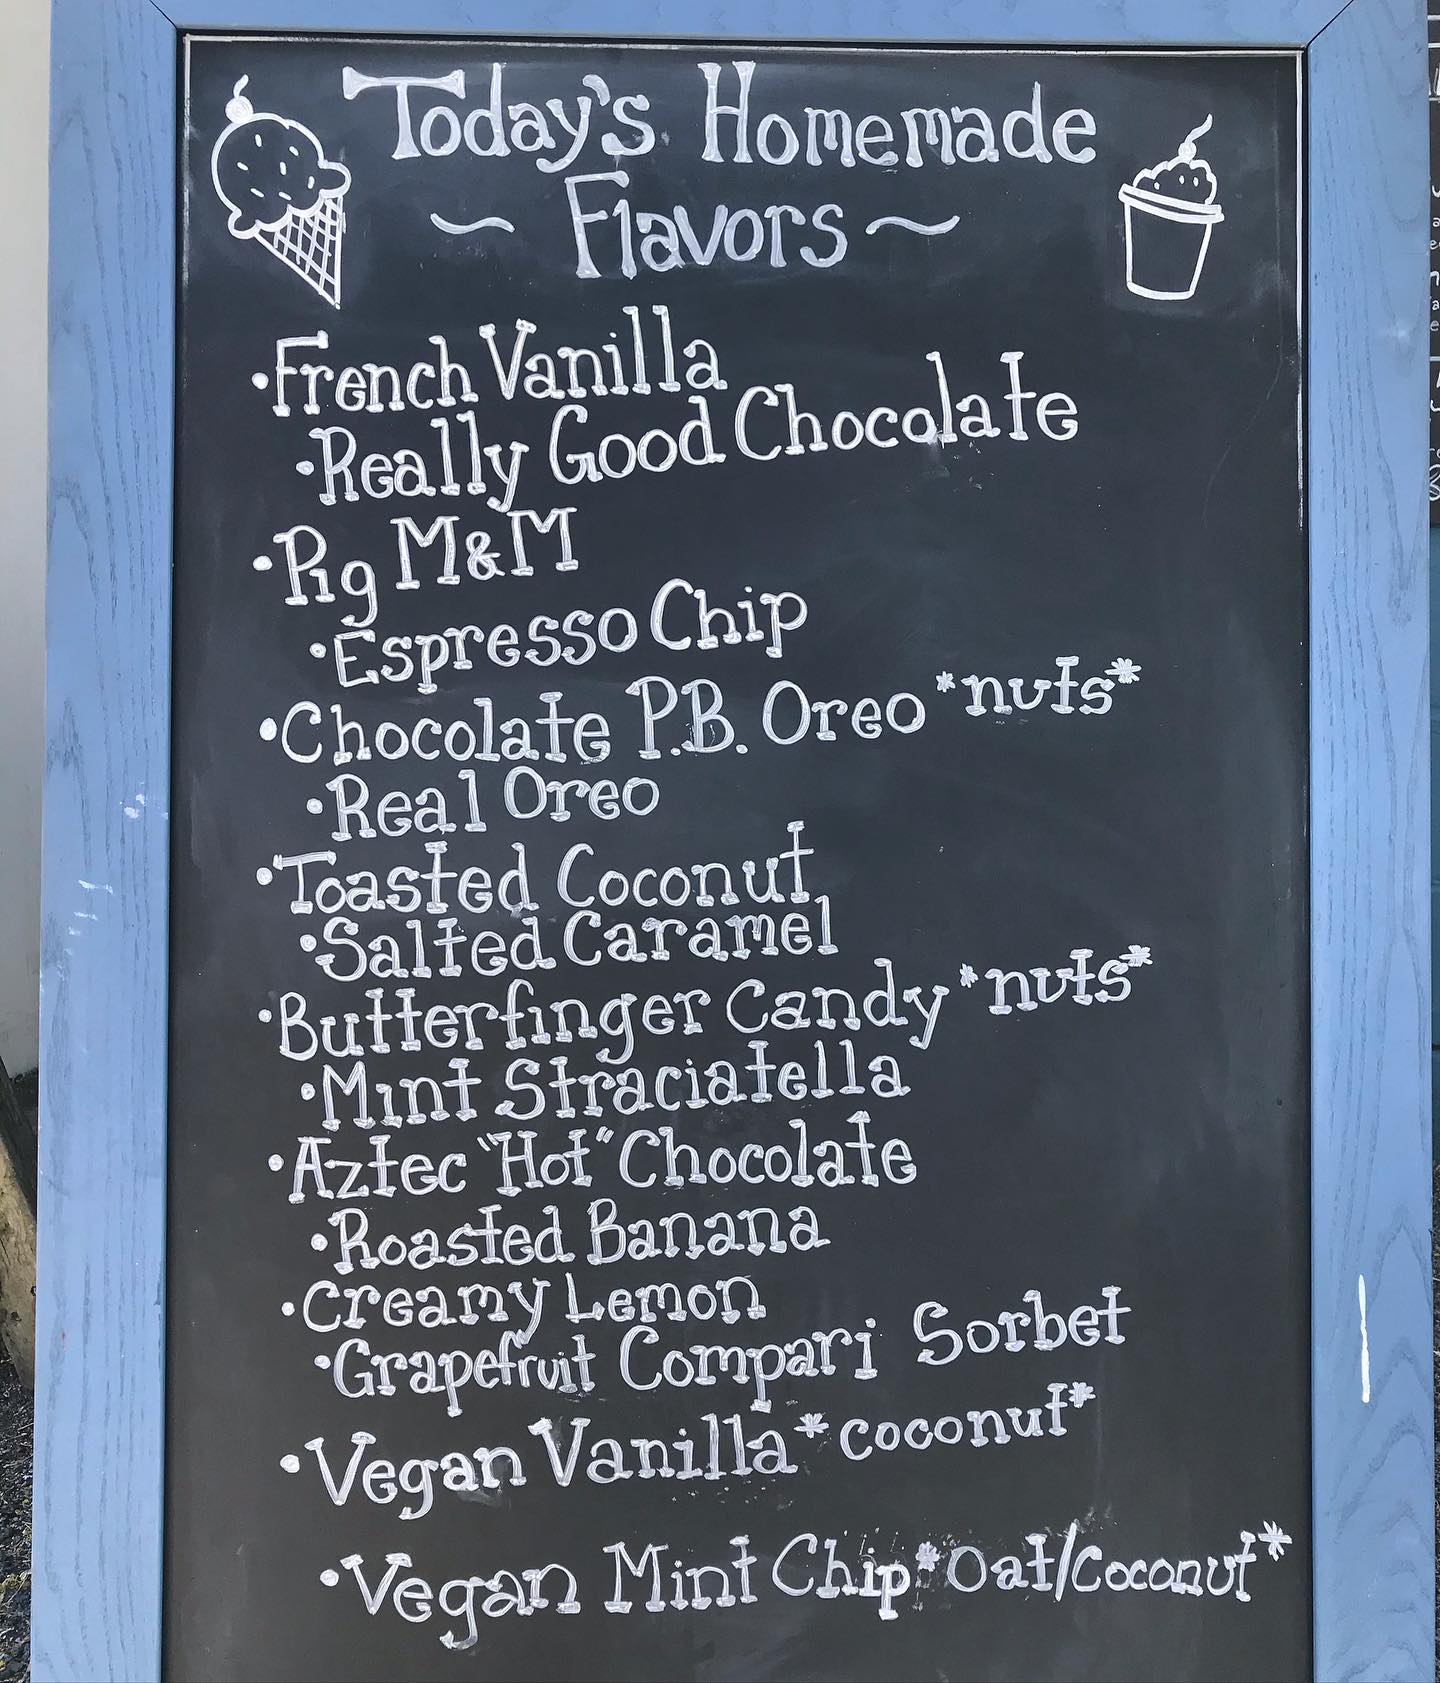 Today's Homemade
~ Flavors ~
•French Vanilla
•Really Good Chocolate
•Pig M&M
•Espresso Chip
•Chocolate P.B. Oreo *nuts*
•Real Oreo
•Toasted Coconut
•Salted Caramel
•Butterfinger Candy *nuts*
•Mint Straciatella
•Aztec "Hot" Chocolate
•Roasted Banana
•Creamy Lemon
•Grapefruit Compari Sorbet
•Vegan Vanilla *coconut*
•Vegan Mint Chip *Oat/Coconut*